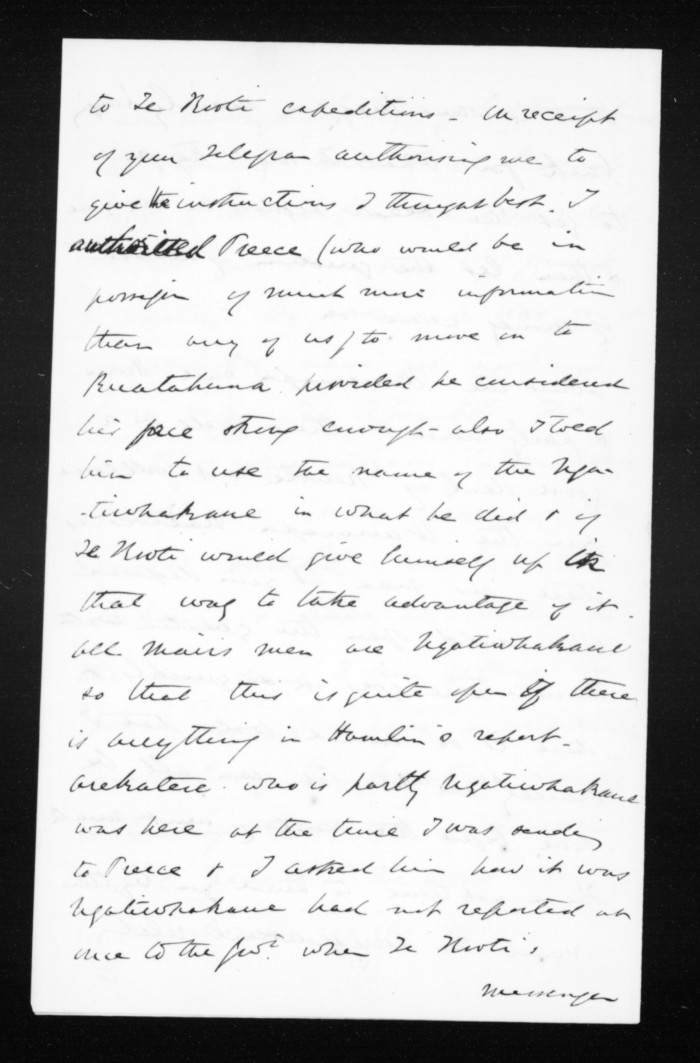 to Te Kooti expeditions - On receipt
of your Telegram authorising me to
give the instructions I thought best. I
authorised Preece (who would be in
possession of much more information
than any of us) to move in to
Ruatahuna provided he considered
his force strong enough - also I told
him to use the name of the Nga-
-tiwhakaue in what he did & if
Te Kooti would give himself up in
that way to take advantage of it.
all Mairs men are Ngatiwhakaue
so that this is quite open if there
is anything in Hamlin's report -
who is partly Ngatiwhakaue
was here at the time I was sending
to Preece & I asked him how it was
Ngatiwhakaue had not reported at
once to the Govt. when Te Kooti's
messenger